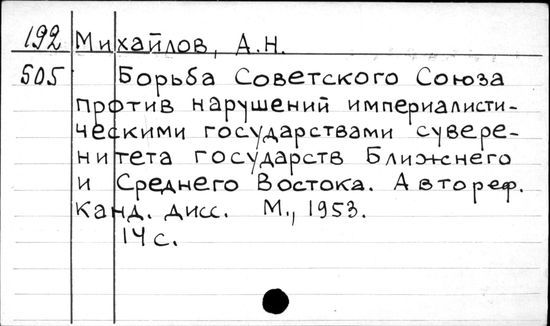 192 Михайлов, А.Н.
505 Борьба Советского Союза
против нарушений империалисти-
ческими государствами сувере-
нитета государств Ближнего
и Среднего Востока. Автореф.
канд. дисс. М., 1953.
14 с.